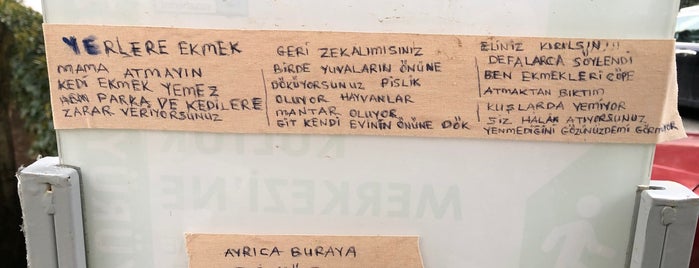 YERLERE EKMEK
MAMA ATMAYIN
KEDİ EKMEK YEMEZ
HEM PARKA VE KEDİLERE
ZARAR VERİYORSUNUZ
GERİ ZEKALIMISINIZ
BİRDE YUVALARIN ÖNÜNE
DÖKÜYORSUNUZ PİSLİK
OLUYOR HAYVANLAR
MANTAR OLUYOR
GİT KENDİ EVİNİN ÖNÜNE DÖK
ELİNİZ KIRILSIN!!!
DEFALARCA SÖYLENDİ
BEN EKMEKLERİ ÇÖPE
ATMAKTAN BIKTIM
KUŞLARDA YEMİYOR
SİZ HALAN ATIYORSUNUZ
YENMEDİĞİNİ GÖZÜNÜZDEMİ GÖRMÜYOR
KÜLTÜR
MERKEZİ'NE
AYRICA BURAYA